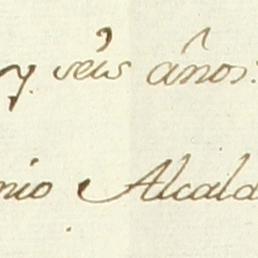 y séis años.
nio Alcald